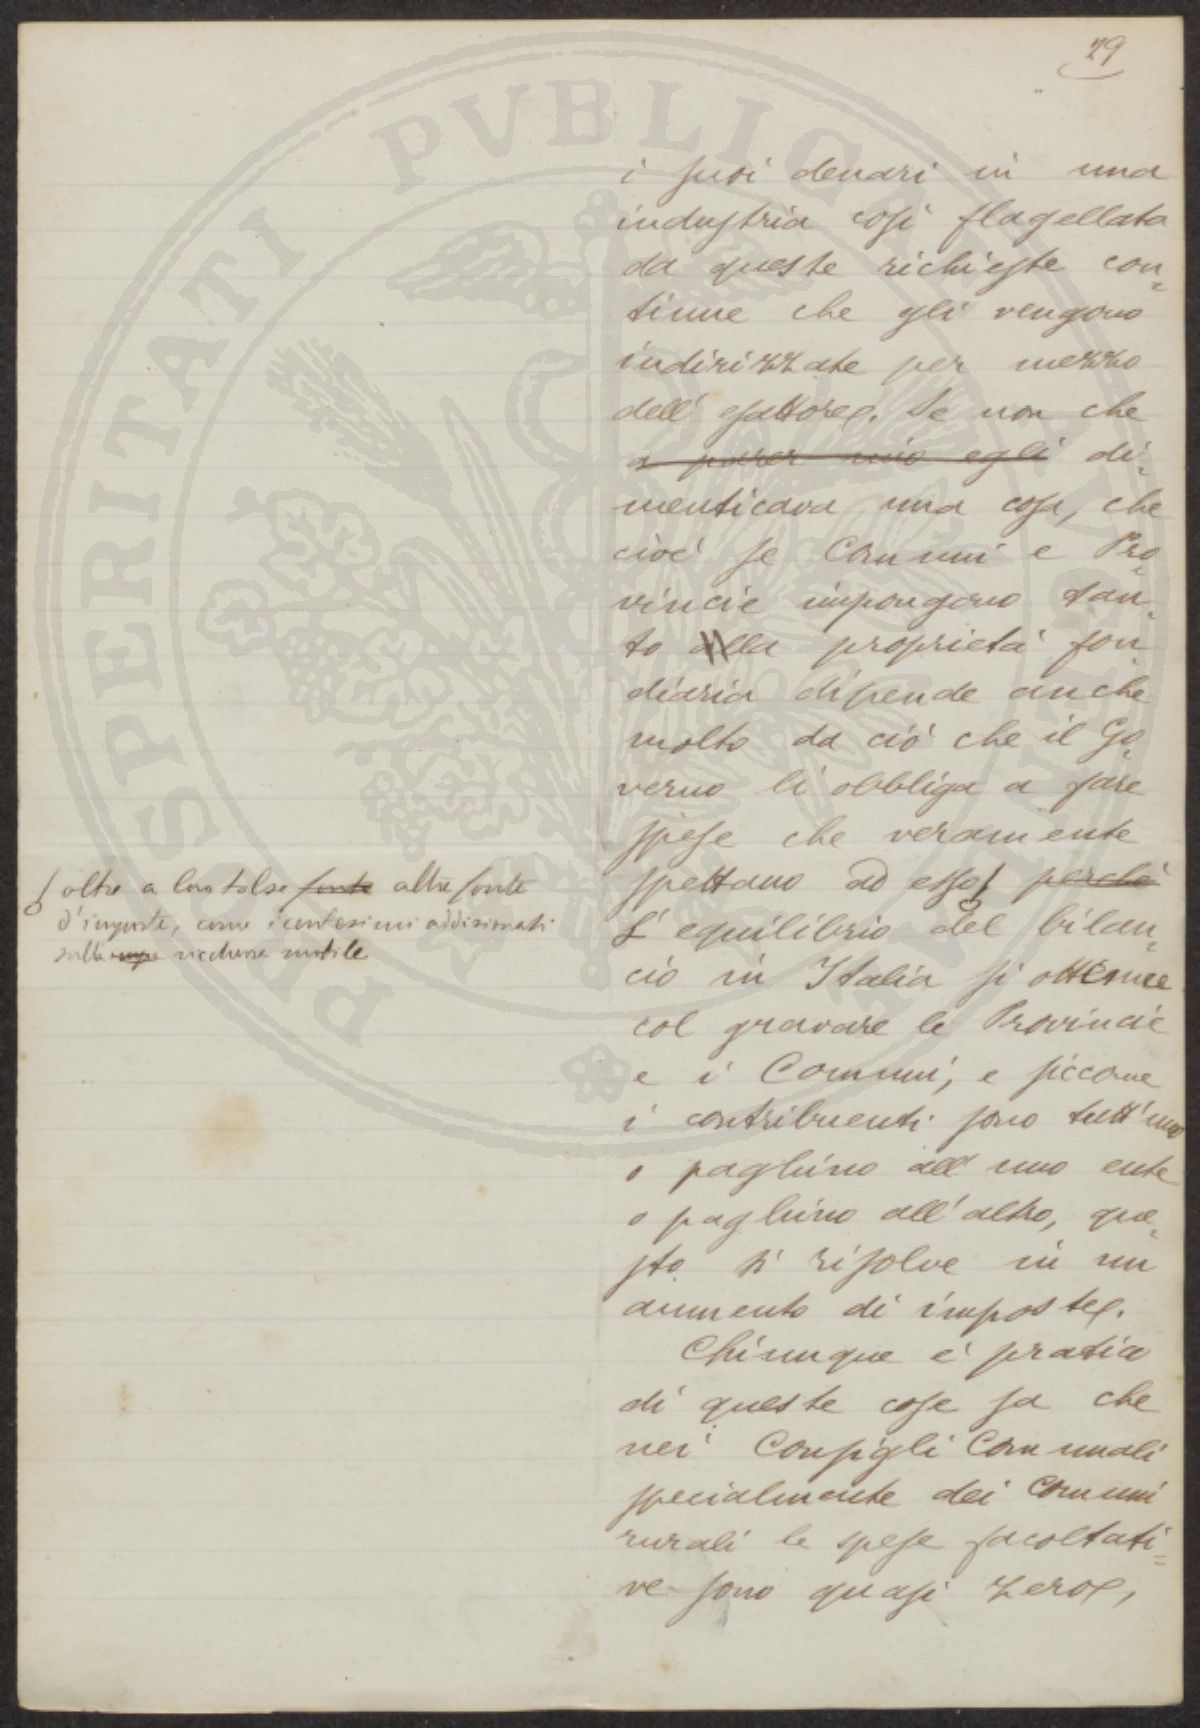 29
i suoi denari in una
industria così flagellata
da queste richieste con=
tinue che gli vengono
indirizzate per mezzo
dell'esattore. Se non che
a parer mio egli di=
menticava una cosa, che
cioè se Comuni e Pro=
vincie impongono tan=
to alla proprietà fon=
diaria dipende anche
molto da ciò che il Go=
verno li obbliga a fare
spese che veramente
spettano ad esso perché
L'equilibrio del bilan=
cio in Italia si ottenne
col gravare le Provincie
e i Comuni, e siccome
i contribuenti sono tutt'uno
o paghino all'uno ente
o paghino all'altro, que=
sto si risolve in un
aumento di imposte.
Chiunque è pratico
di queste cose sa che
nei Consigli Comunali
specialmente dei Comuni
rurali le spese facoltati=
ve sono quasi zero,
oltre a loro tolse fonte altre fonti
d'imposte, come i centesimi addizionali
sulla ricchezza mobile
PROSPERITATI PVBLICAE AVGENDAE